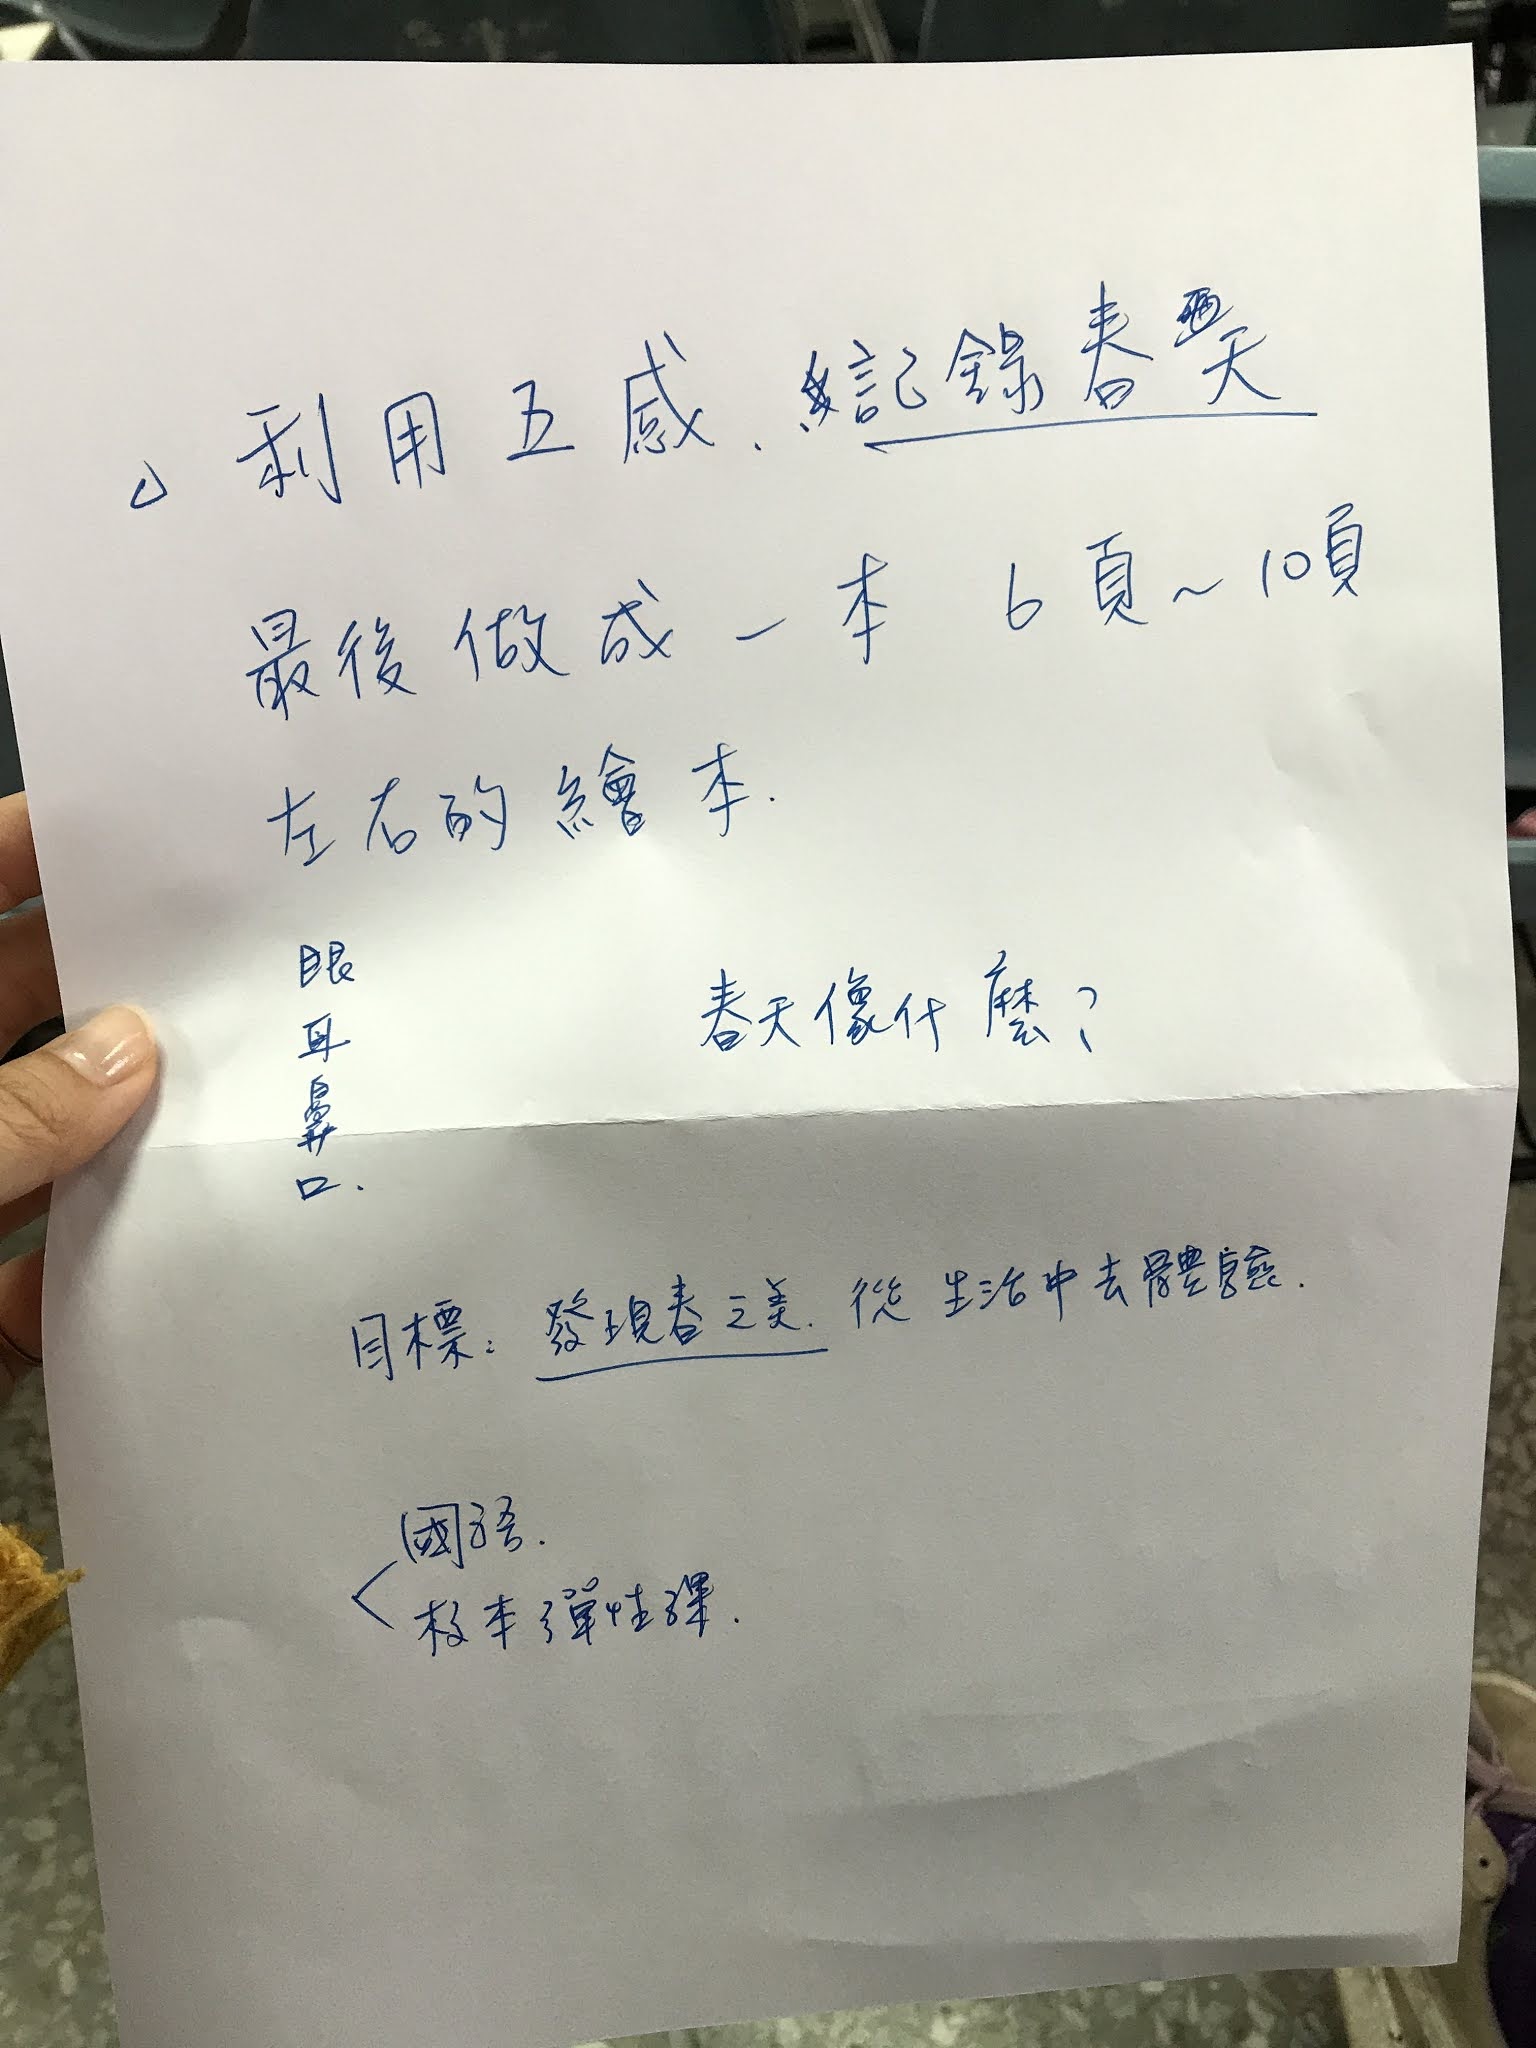 利用五感、記錄春天
最後做成一本 6頁~10頁
左右的繪本.
眼
耳
鼻
口.
春天像什麼?
目標: 發現春之美. 從生活中去體驗.
國語.
校本彈性課.